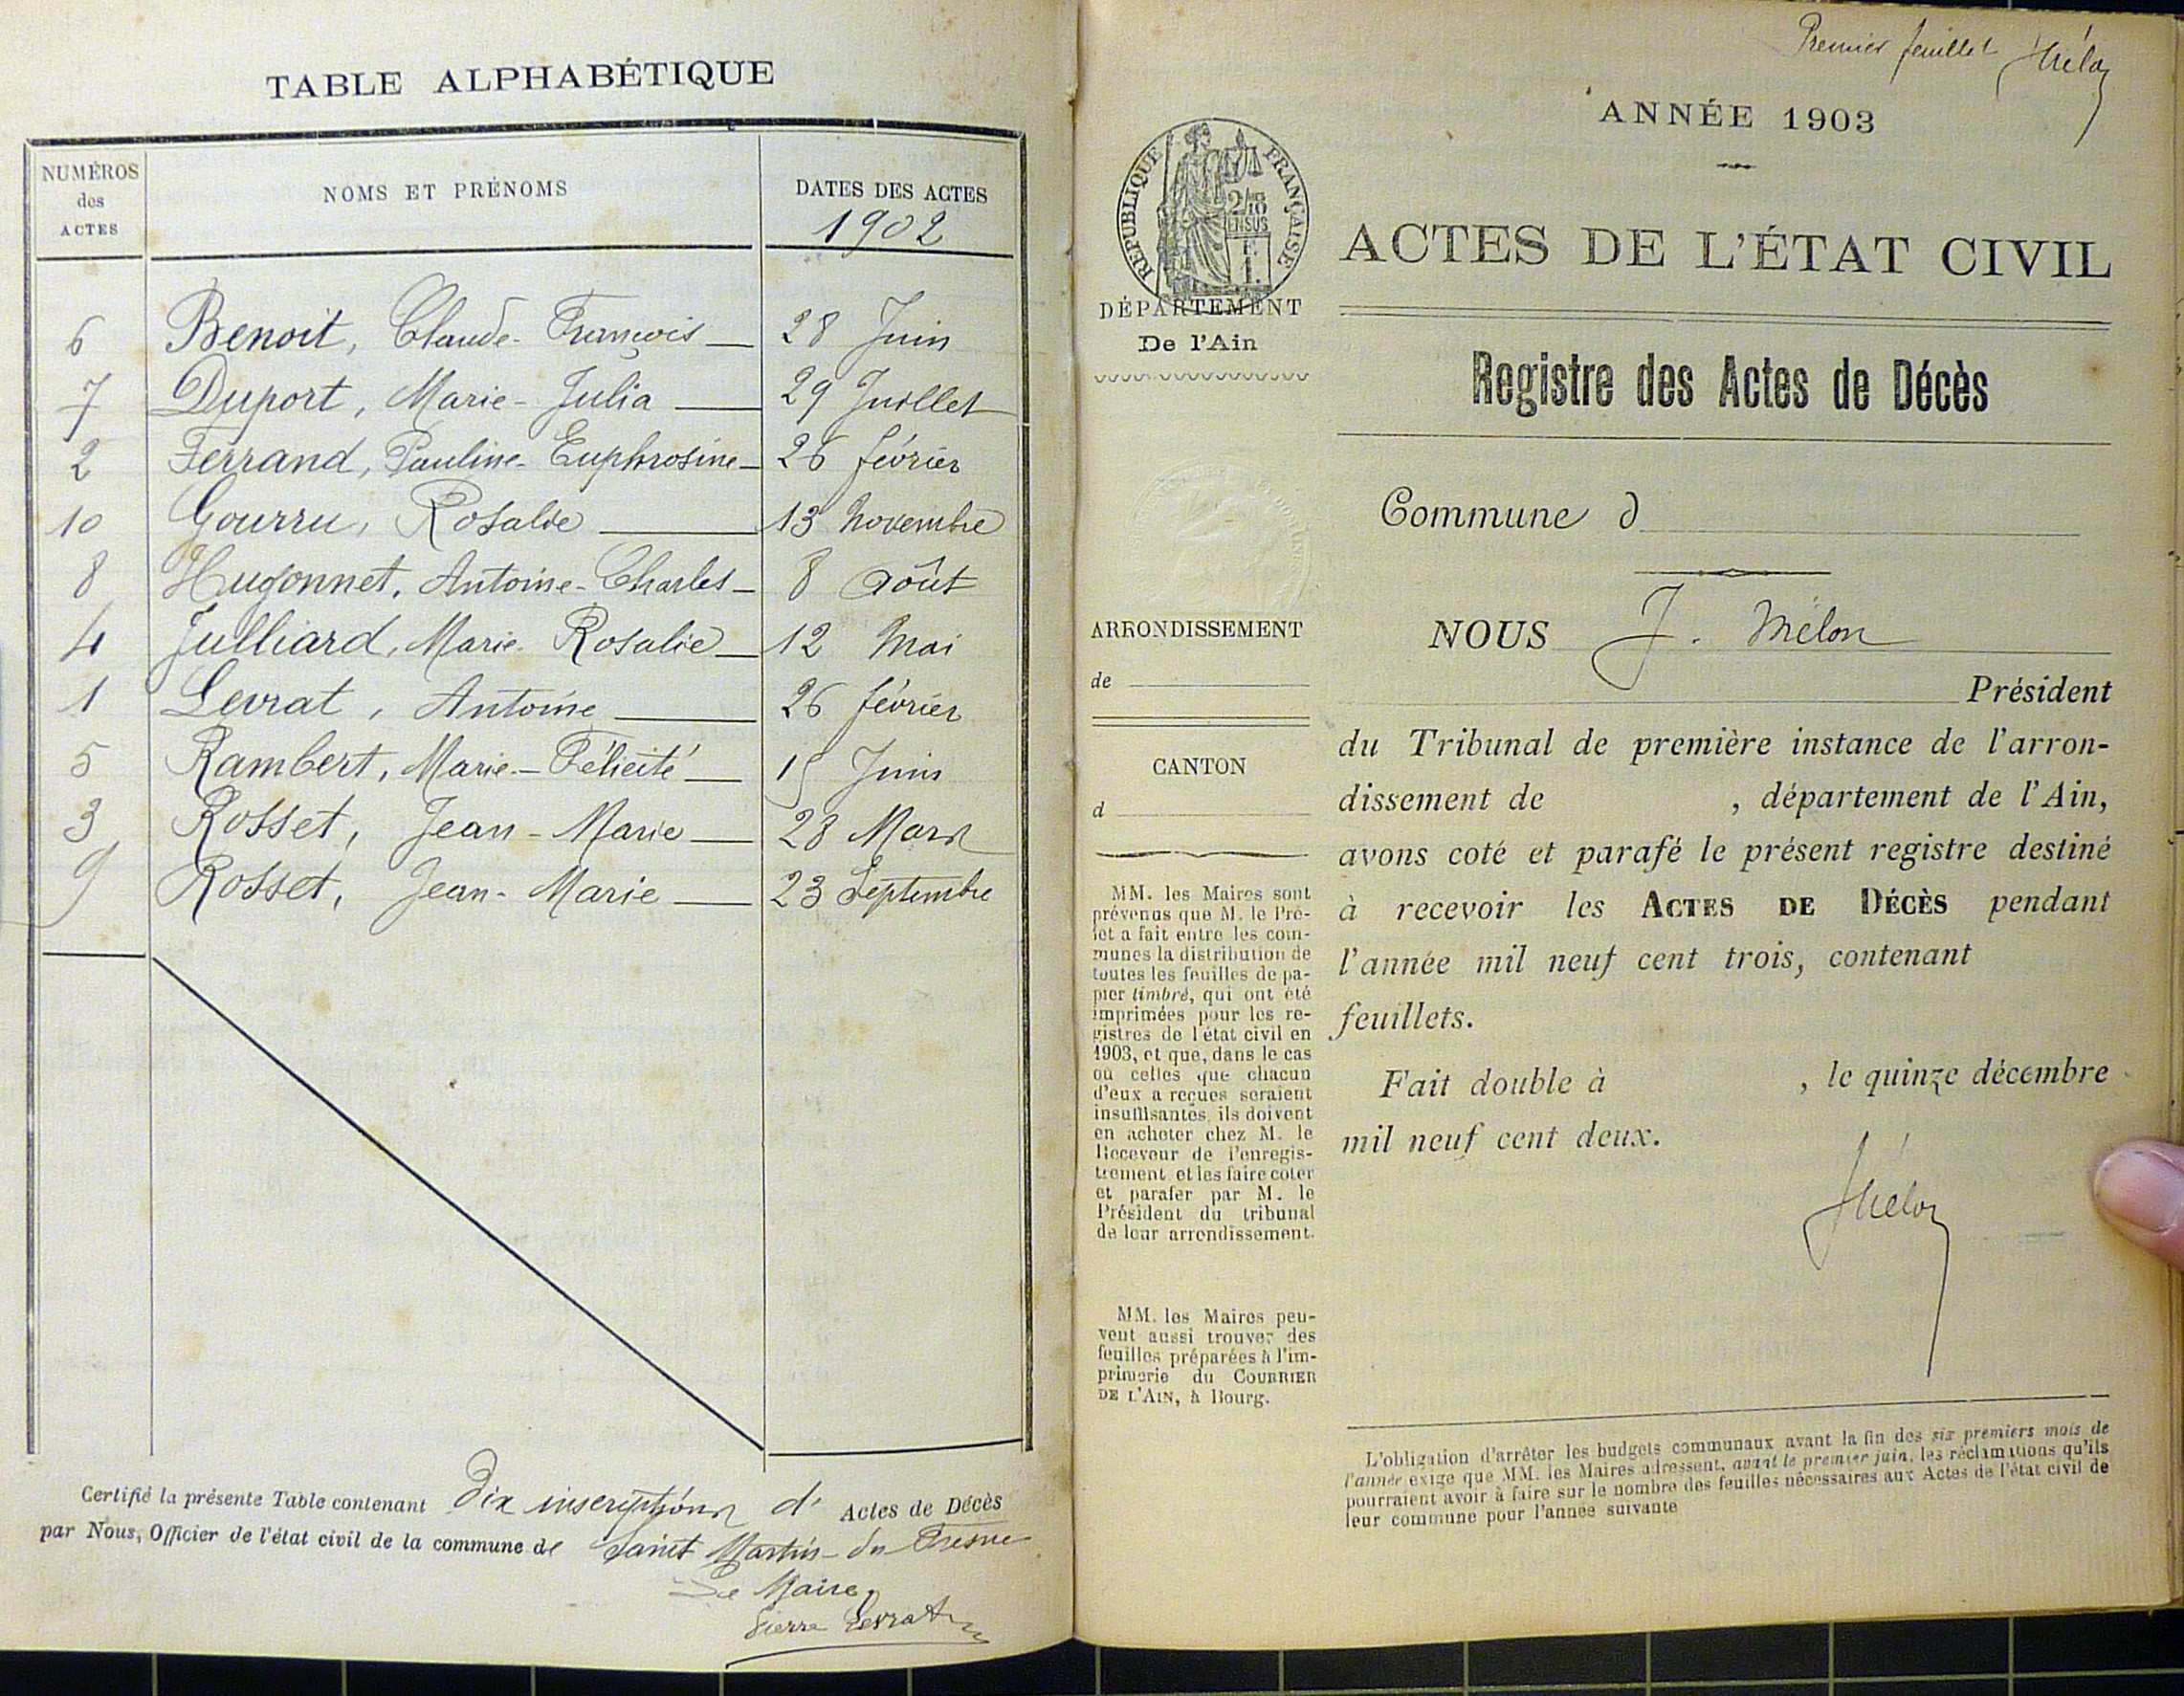 TABLE ALPHABÉTIQUE
NUMÉROS
des
ACTES
NOMS ET PRÉNOMS
DATES DES ACTES
1902
6 Benoit, Claude-François 28 Juin
7 Duport, Marie-Julia 29 Juillet
2 Ferrand, Pauline-Euphrosine 26 février
10 Gourru, Rosalie 13 Novembre
8 Hugonnet, Antoine-Charles 8 Août
4 Julliard, Marie-Rosalie 12 Mai
1 Levrat, Antoine 26 février
5 Rambert, Marie-Félicité 15 Juin
3 Rosset, Jean-Marie 28 Mars
9 Rosset, Jean-Marie 23 Septembre
Certifié la présente Table contenant Dix inscriptions d' Actes de Décès
par Nous, Officier de l'état civil de la commune de Saint Martin-du Fresne
Le Maire,
Pierre Levrat
Premier feuillet
Mélon
ANNÉE 1903
RÉPUBLIQUE FRANÇAISE
2/10
EN SUS
1 F.
ACTES DE L'ÉTAT CIVIL
DÉPARTEMENT
De l'Ain
Registre des Actes de Décès
Commune d
ARRONDISSEMENT
de
CANTON
d
NOUS J. Mélon
Président
du Tribunal de première instance de l'arron-
dissement de , département de l'Ain,
avons coté et parafé le présent registre destiné
à recevoir les ACTES DE DÉCÈS pendant
l'année mil neuf cent trois, contenant
feuillets.
Fait double à , le quinze décembre
mil neuf cent deux.
Mélon
MM. les Maires sont
prévenus que M. le Pré-
fet a fait entre les com-
munes la distribution de
toutes les feuilles de pa-
pier timbré, qui ont été
imprimées pour les re-
gistres de l'état civil en
1903, et que, dans le cas
où celles que chacun
d'eux a reçues seraient
insuffisantes, ils doivent
en acheter chez M. le
Receveur de l'enregis-
trement et les faire coter
et parafer par M. le
Président du tribunal
de leur arrondissement.
MM. les Maires peu-
vent aussi trouver des
feuilles préparées à l'im-
primerie du COURRIER
DE L'AIN, à Bourg.
L'obligation d'arrêter les budgets communaux avant la fin des six premiers mois de
l'année exige que MM. les Maires adressent, avant le premier juin, les réclamations qu'ils
pourraient avoir à faire sur le nombre des feuilles nécessaires aux Actes de l'état civil de
leur commune pour l'année suivante